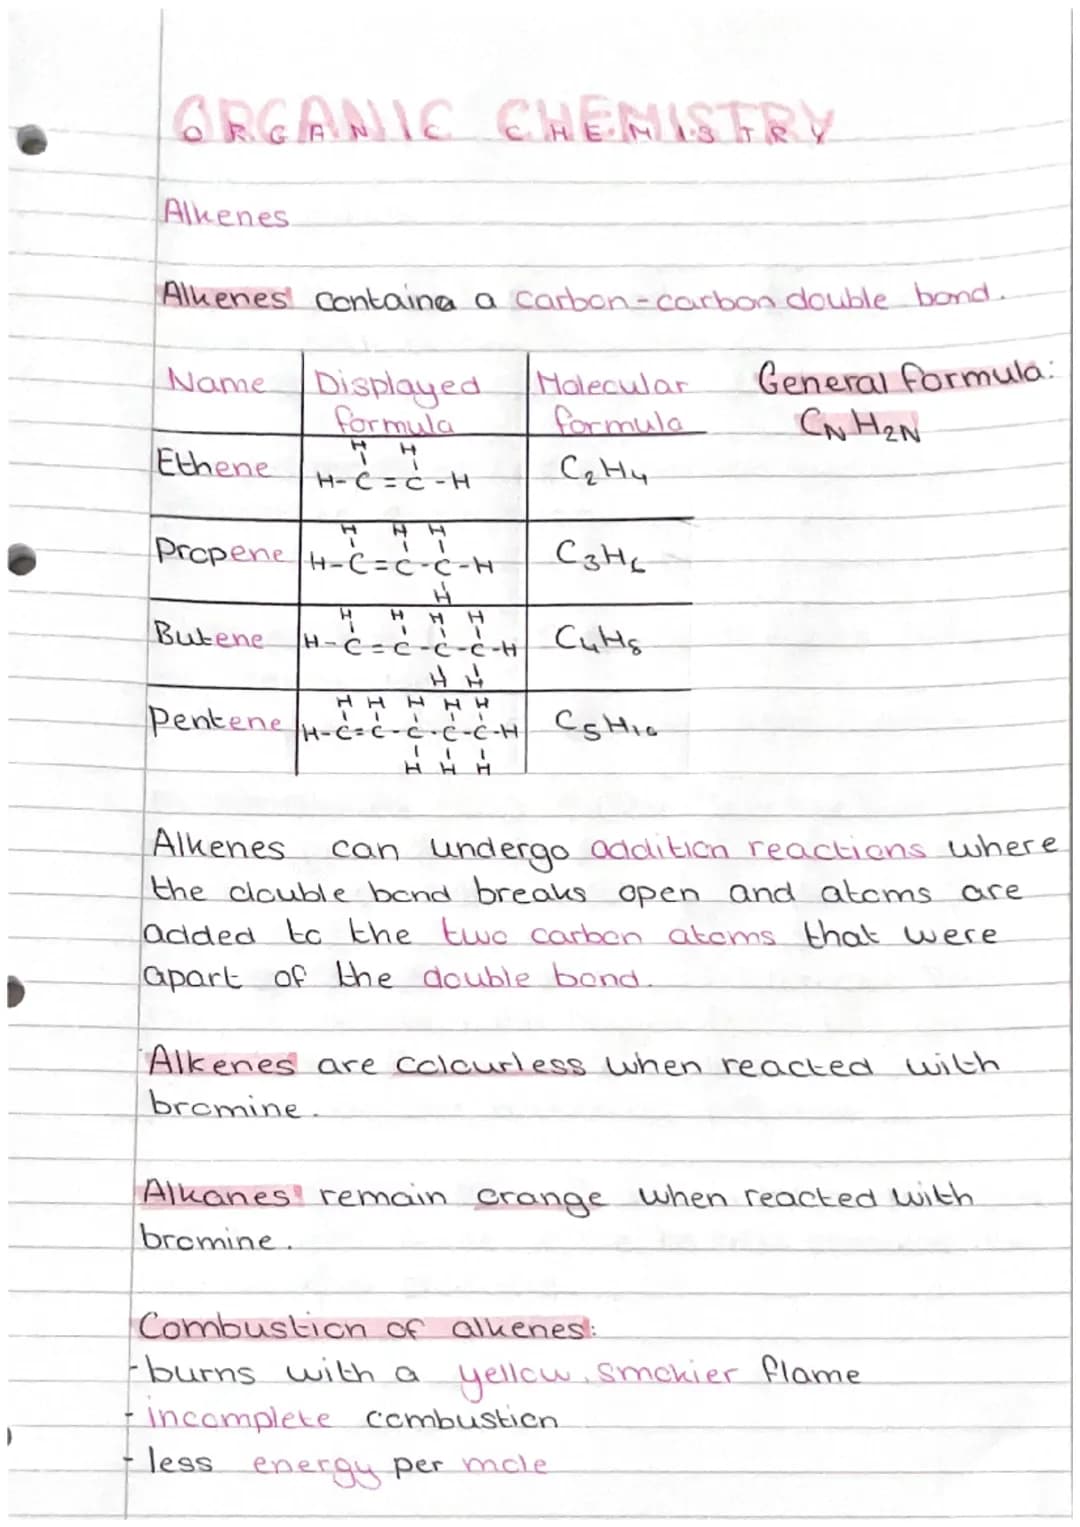 ORGANIC CHEMISTRY
Alkenes
Alkenes containa a carbon-carbon double bond.
Name Displayed formula Molecular formula General formula: CNH2N
Ethene C2H4
H H
H-C=C-H
Propene C3H6
H H H
H-C=C-C-H
H
Butene C4H8
H H H H
H-C=C-C-C-H
H H
Pentene C5H10
H H H H H
H-C=C-C-C-C-H
H H H
Alkenes can undergo addition reactions where
the double bond breaks open and atoms are
added to the two carbon atoms that were
apart of the double bond.
Alkenes are colourless when reacted with
bromine.
Alkanes remain orange when reacted with
bromine.
Combustion of alkenes:
-burns with a yellow, smokier flame
-incomplete combustion
-less energy per mole